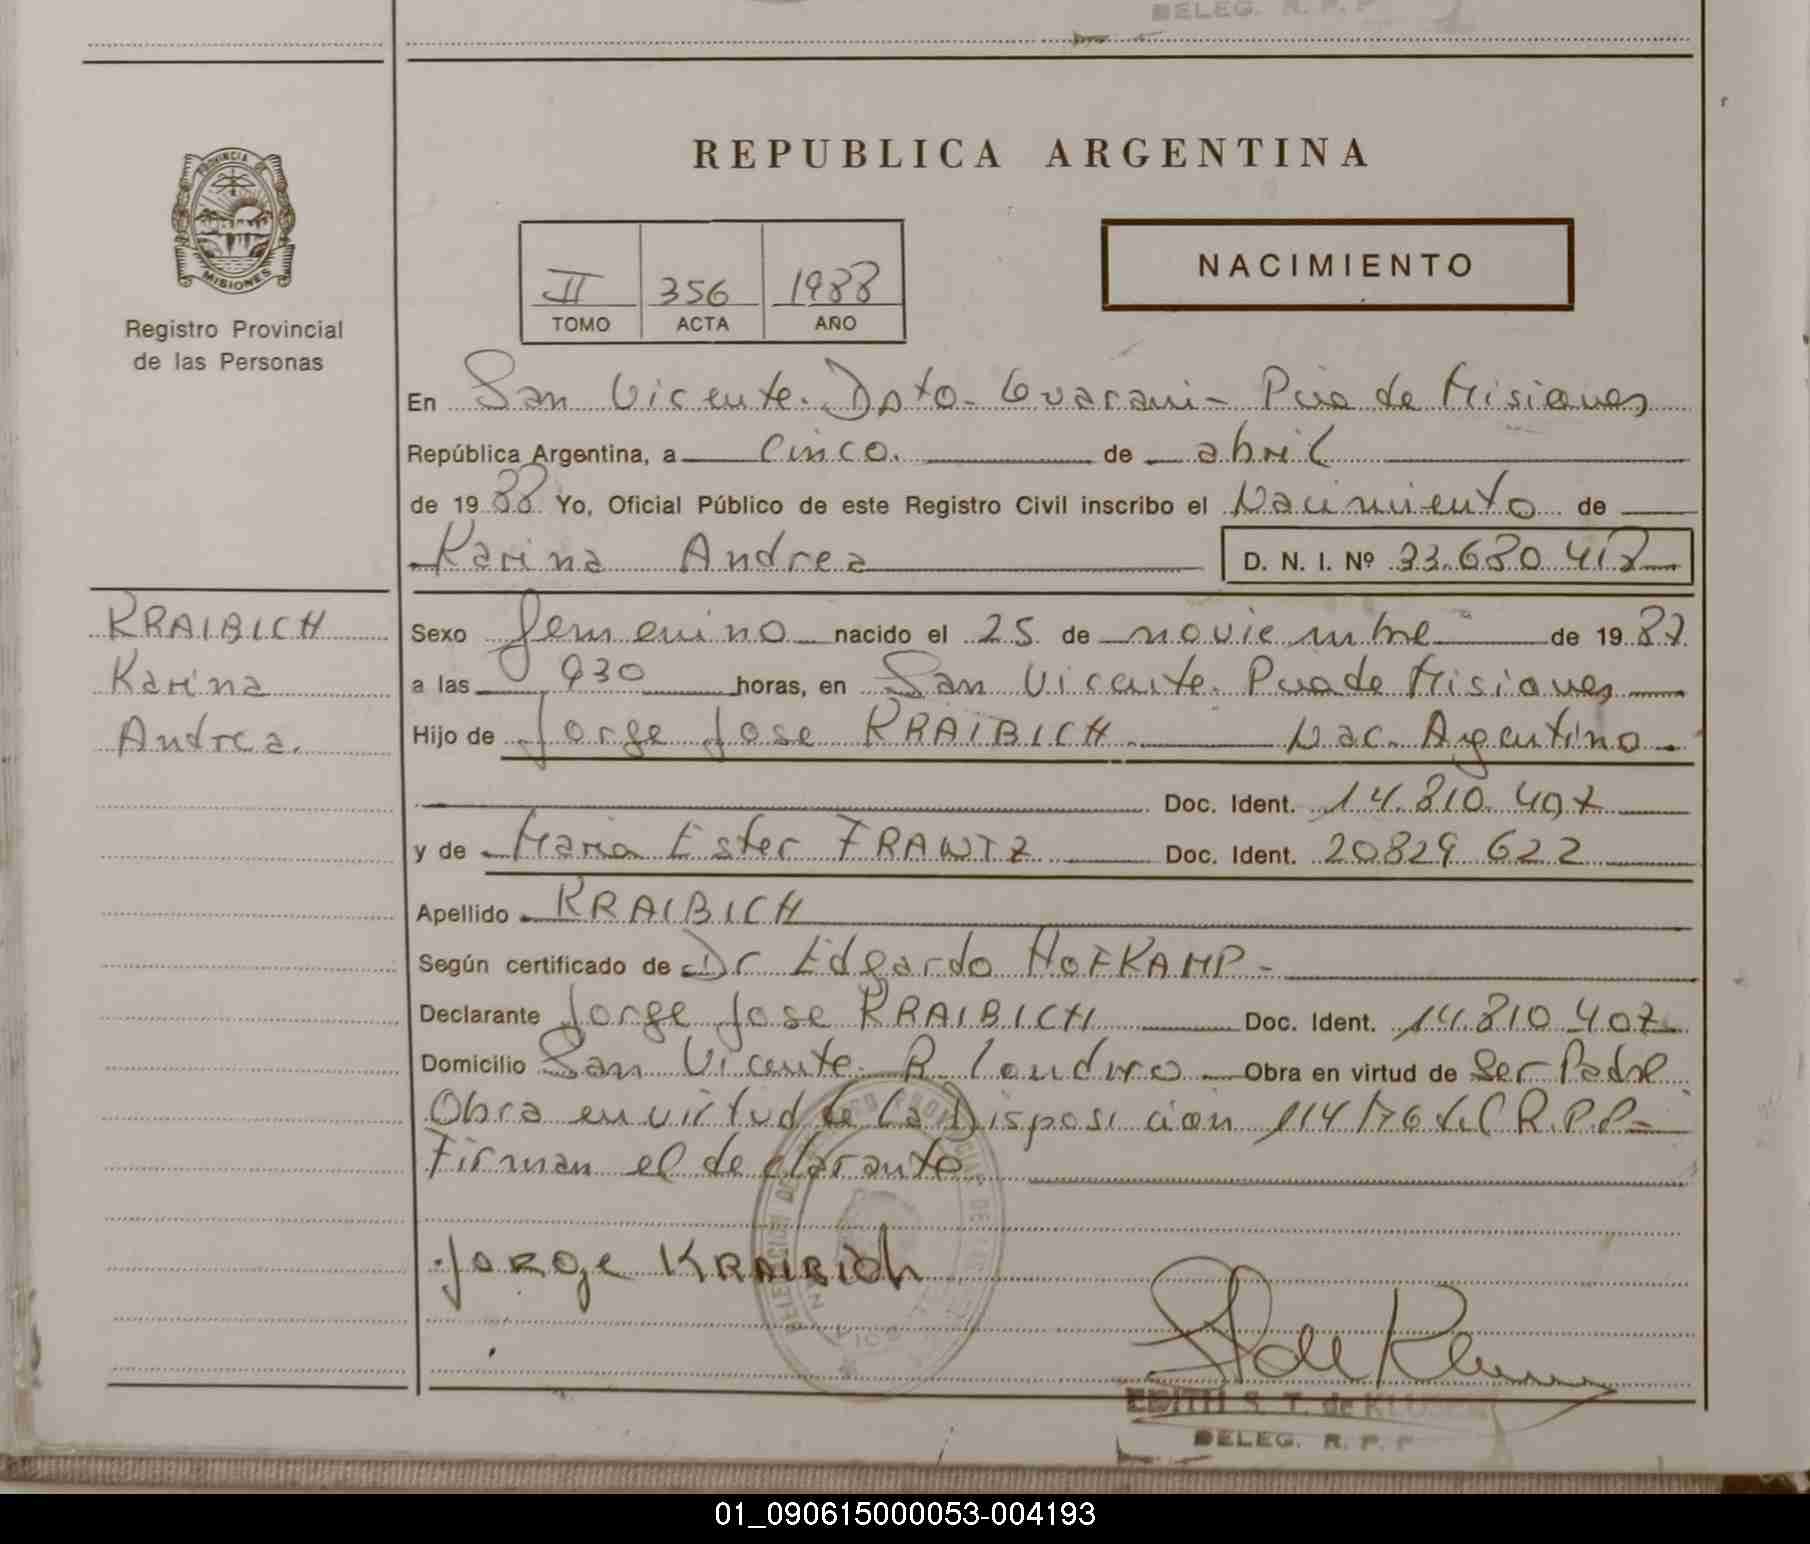 DELEG. R. P. P.
REPUBLICA ARGENTINA
PROVINCIA DE
MISIONES
Registro Provincial
de las Personas
II 356 1988
TOMO ACTA AÑO
NACIMIENTO
En San Vicente. Dpto- Guarani- Pcia de Misiones
República Argentina, a cinco. de abril
de 19 88 Yo, Oficial Público de este Registro Civil inscribo el Nacimiento de
Karina Andrea D. N. I. Nº 33.680.418
KRAIBICH
Karina
Andrea.
Sexo femenino nacido el 25 de noviembre de 19 87
a las 930 horas, en San Vicente. Pcia de Misiones
Hijo de Jorge Jose KRAIBICH. Nac. Argentino.
Doc. Ident. 14.810.407
y de Maria Ester FRANTZ Doc. Ident. 20829 622
Apellido KRAIBICH
Según certificado de Dr Edgardo HOFKAMP-
Declarante Jorge Jose KRAIBICH Doc. Ident. 14.810.407
Domicilio San Vicente. B. Londero Obra en virtud de Ser Padre
Obra en virtud de la Disposicion 114/76 del R.P.P=
Firman el declarante
Jorge KRAIBICH
EDITH S. T. de KLUSEN
DELEG. R. P. P
01_090615000053-004193